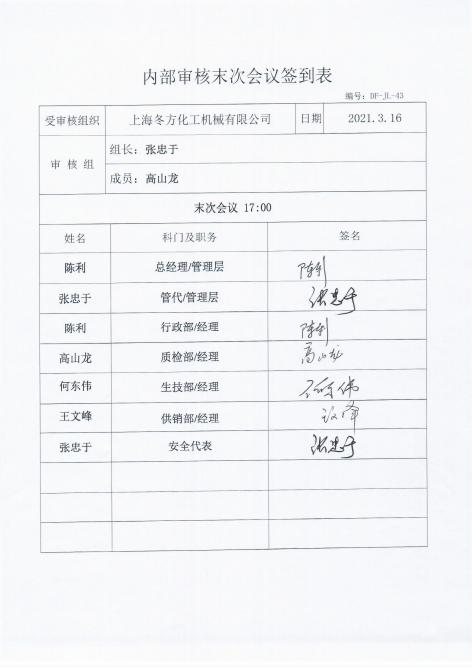 内部审核末次会议签到表
编号：DF-JL-43
受审核组织 上海冬方化工机械有限公司 日期 2021.3.16
审 核 组 组长：张忠于
成员：高山龙
末次会议 17:00
姓名 科门及职务 签名
陈利 总经理/管理层 陈利
张忠于 管代/管理层 张忠于
陈利 行政部/经理 陈利
高山龙 质检部/经理 高山龙
何东伟 生技部/经理 何东伟
王文峰 供销部/经理
张忠于 安全代表 张忠于